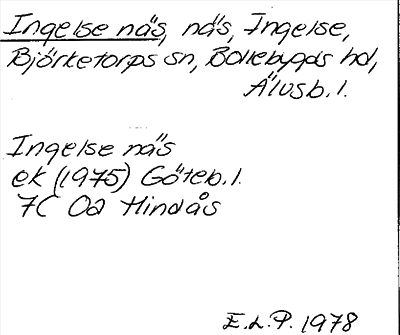 Ingelse näs, näs, Ingelse,
Björketorps sn, Bollebygds hd,
Älvsb. l.
Ingelse näs
ek (1975) Göteb. l.
7C 0a Hindås
E.L.P. 1978